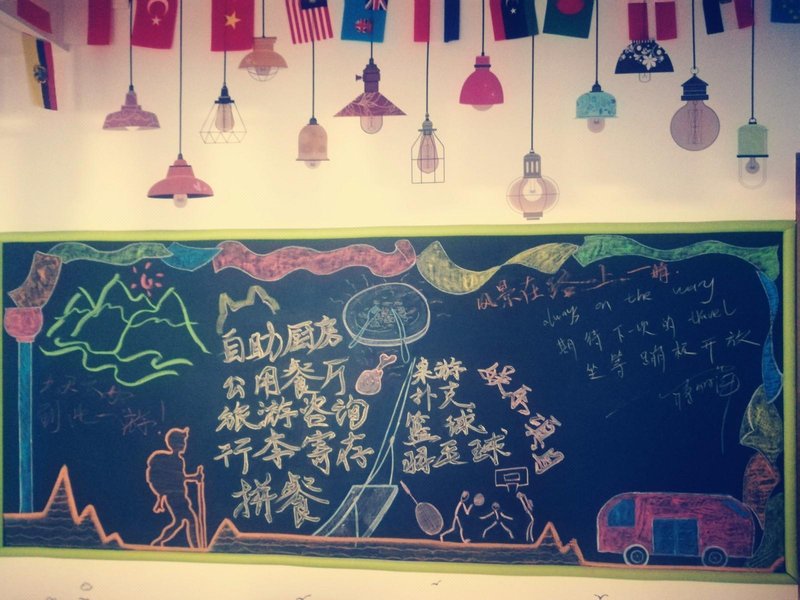 自助厨房
公用餐厅
旅游咨询
行李寄存
拼餐
桌游
扑克
篮球
羽毛球
风景在路上
on the way
期待下次的 travel
坐等
开放
到此一游!